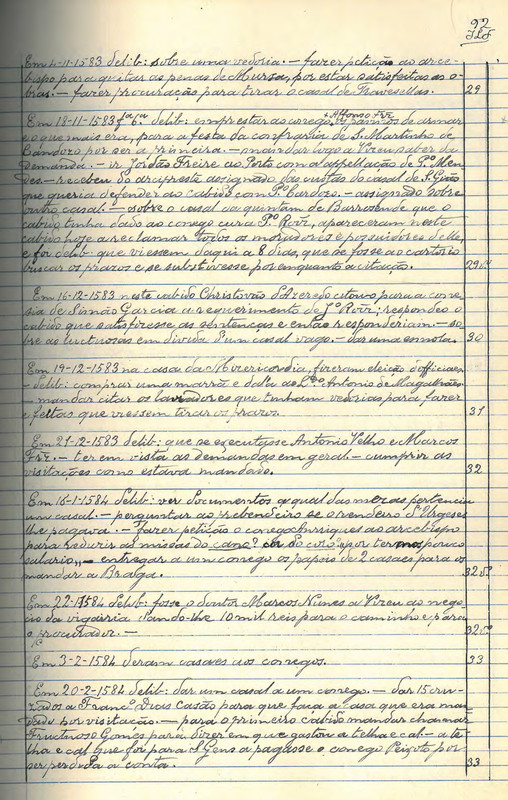 92
Em 4-11-1583 delib: sobre uma vedoria. — fazer petição ao arce-
bispo para quitar as penas de Mursa, por estar satisfeitas as o-
bras. — fazer procuração para tirar o casal de Travesellas. 29
Affonso Frz
Em 18-11-1583 fª 6ª. delib: emprestar ao conego os pannos de armar
e o que mais era, para a festa da confraria de S. Martinho de
Candoso por ser a primeira. — mandar logo a Viseu saber da
demanda. — ir Jordão Freire ao Porto com a appellação de Pº Men-
des. — recebeu do arcipreste assignado das custas do casal de S. Gião
que queria defender ao cabido com Pº Cardozo. — assignado sobre
outro casal. — sobre o casal da quintam de Barrosende que o
cabido tinha dado ao conego cura Pº Roiz, apareceram neste
cabido hoje a reclamar todos os moradores e possuidores delle,
e foi delib: que viessem daqui a 8 dias, que se fosse ao cartorio
buscar os prazos e se substivesse por enquanto a citação. 29vº
Em 16-12-1583 neste cabido Christovão d'Azeredo citou para a cone-
sia de Simão Garcia a requerimento de Jº Roiz, respondeo o
cabido que satisfizesse as sentenças e então responderiam. — so-
bre as luctuosas em divida d'um casal vago. — dar uma esmola. 30
Em 19-12-1583 na casa da Misericordia, fizeram eleição d'officiaes.
— delib: comprar uma marrã e dal-a ao Lº Antonio de Magalhães
— mandar citar os lavradores que tinham vedorias para fazer
e feitas que viessem tirar os prazos. 31
Em 21-12-1583 delib: que se executasse Antonio Velho e Marcos
Frz. — ter em vista as demandas em geral. — cumprir as
visitações como estava mandado. 32
Em 16-1-1584 delib: ver documentos a qual das mezas pertencia
um casal. — perguntar ao prebendeiro se o rendeiro d'Urgeses
lhe pagava. — fazer petição o conego Anriques ao arcebispo
para reduzir as missas do por termos pouco
salario, — entregar a um conego os papeis de 2 casaes para os
mandar a Braga. 32vº
Em 22-1-1584 delib: fosse o doutor Marcos Nunes a Viseu ao nego-
cio da vigairia dando-lhe 10 mil reis para o caminho e para
o procurador. — 32vº
Em 3-2-1584 deram casaes aos conegos. 33
Em 20-2-1584 delib: dar um casal a um conego. — dar 15 cru-
zados a Francº Dias Casão para que faça a casa que era man-
dado por visitação. — para o primeiro cabido mandar chamar
Fructuoso Gomes para dizer em que gastou a telha e cal — a te-
lha e cal que foi para S. Gens a pagasse o conego Peixoto por
ser perdida a conta. 33